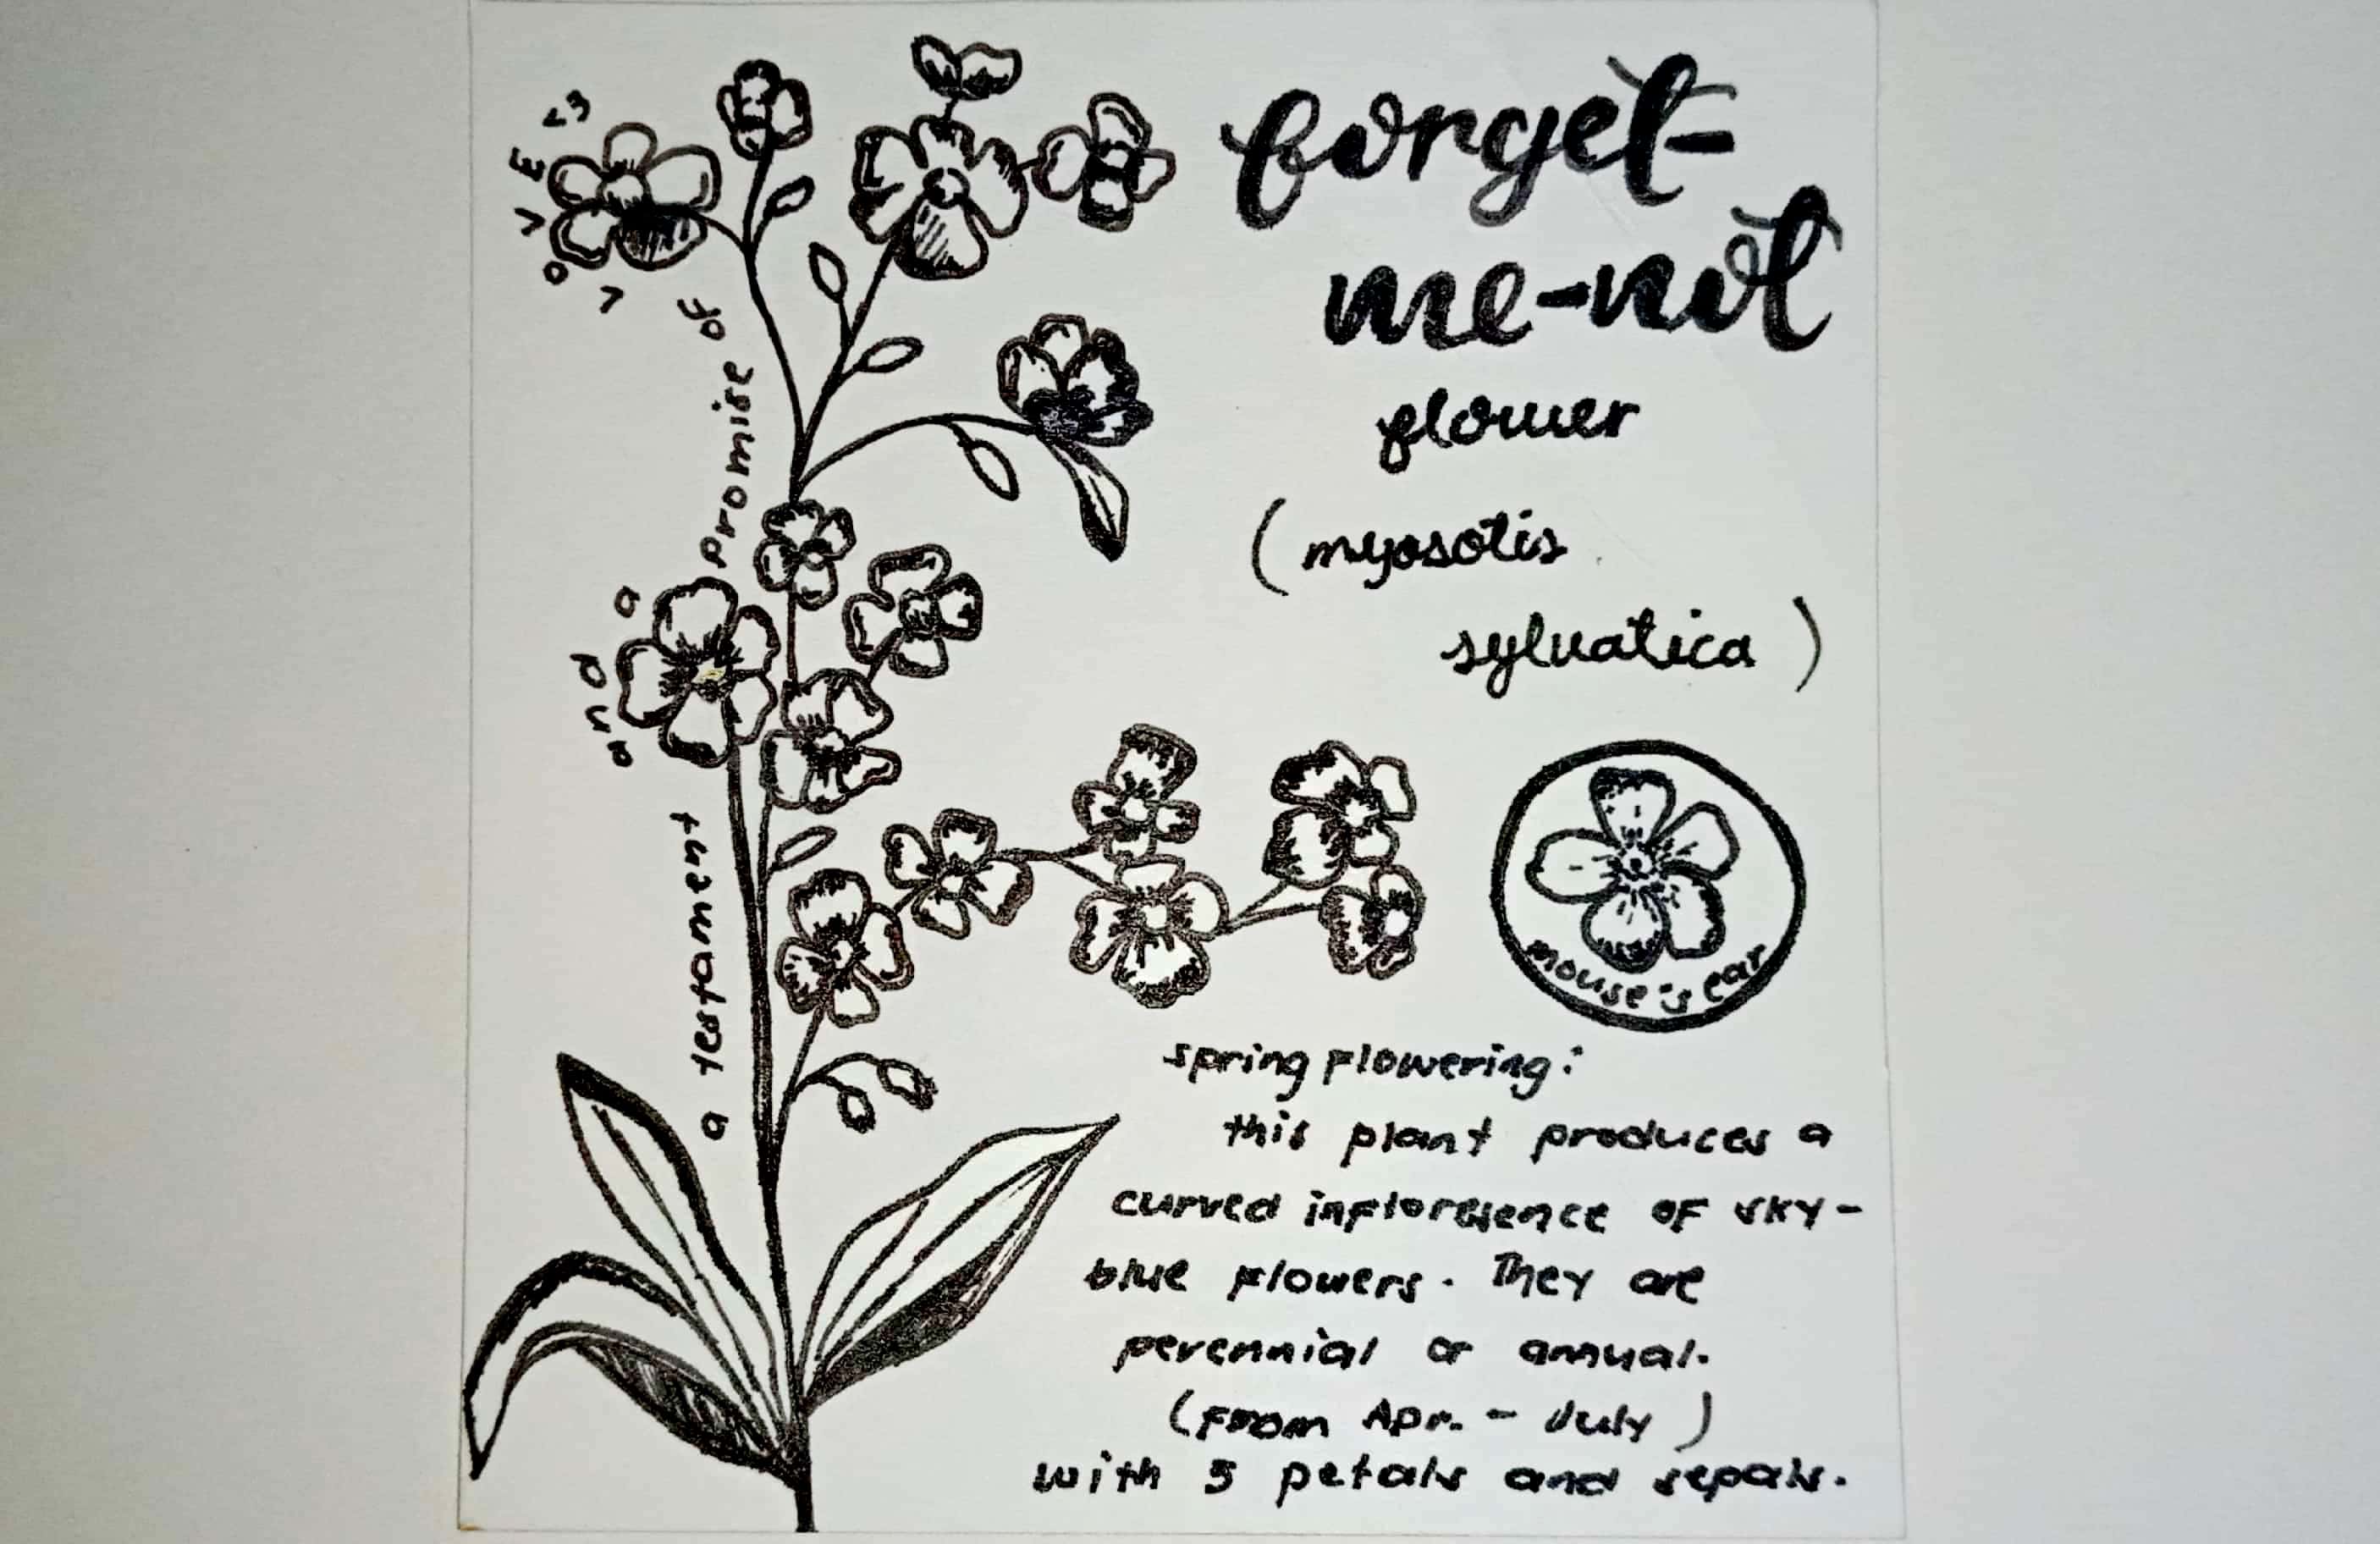 forget-
me-not
flower
(myosotis
sylvatica)
a testament and a promise of LOVE <3
mouse's ear
spring flowering:
this plant produces a
curved infloresence of sky-
blue flowers. They are
perennial or annual.
(from Apr. - July)
with 5 petals and sepals.